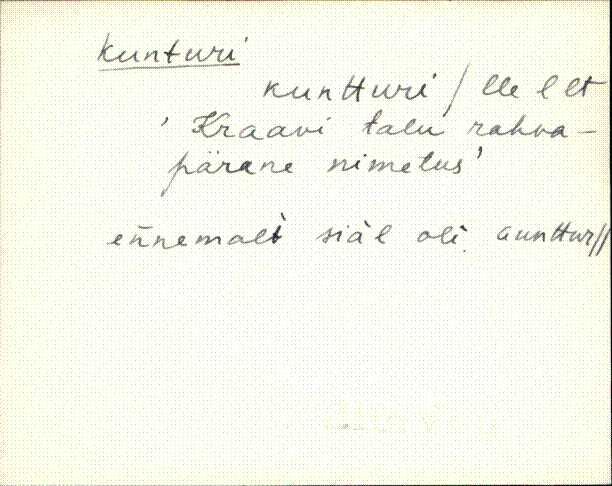 kunturi
kuntturi / lle l lt
' Kraavi talu rahva-
pärane nimetus'
ennemalt siäl oli Gunttur//